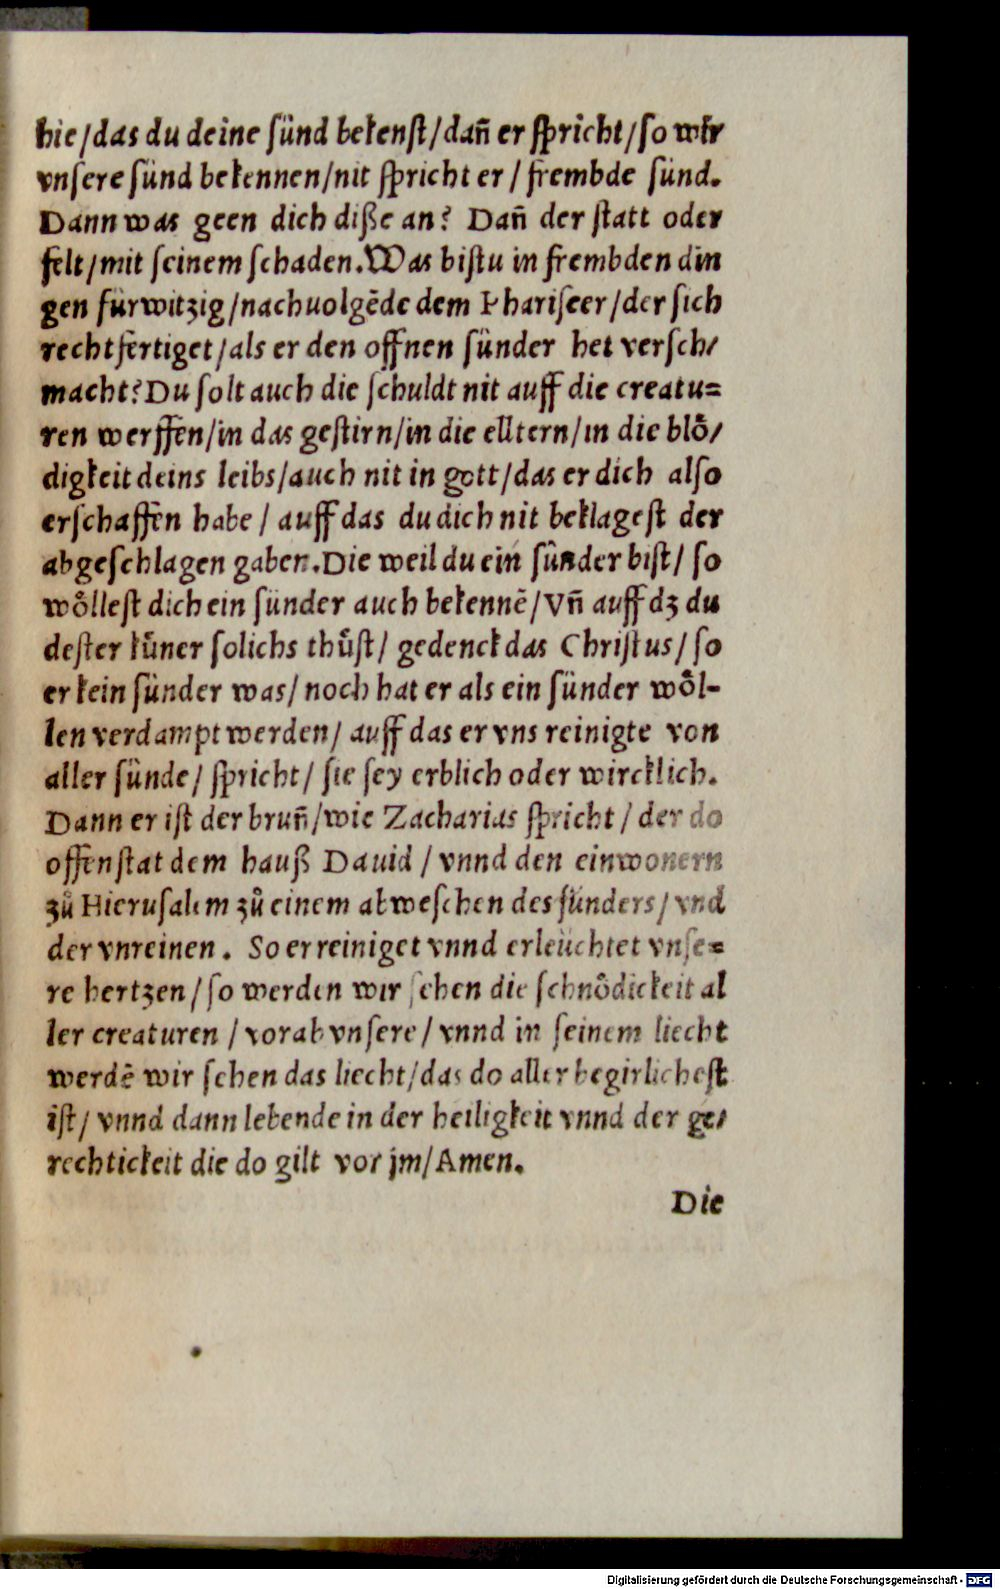 hie/das du deine ſünd bekenſt/dañ er ſpricht/ſo wir
vnſere ſünd bekennen/nit ſpricht er / frembde ſünd.
Dann was geen dich diße an? Dañ der ſtatt oder
felt/mit ſeinem ſchaden.Was biſtu in frembden din
gen fürwitzig/nachuolgēde dem Phariſeer/der ſich
rechtfertiget/als er den offnen ſünder het verſch/
macht?Du ſolt auch die ſchuldt nit auff die creatu=
ren werffen/in das geſtirn/in die elltern/in die bloͤ/
digkeit deins leibs/auch nit in gott/das er dich alſo
erſchaffen habe / auff das du dich nit beklageſt der
abgeſchlagen gaben.Die weil du ein ſünder biſt/ ſo
woͤlleſt dich ein ſünder auch bekennē/Vñ auff dz du
deſter kuͤner ſolichs thuͤſt/ gedenck das Chriſtus/ ſo
er kein ſünder was/ noch hat er als ein ſünder woͤl-
len verdampt werden/ auff das er vns reinigte von
aller ſünde/ ſpricht/ ſie ſey erblich oder wircklich.
Dann er iſt der bruñ/wie Zacharias ſpricht / der do
offen ſtat dem hauß Dauid / vnnd den einwonern
zuͦ Hieruſalem zuͦ einem abweſchen des ſünders/ vnd
der vnreinen . So er reiniget vnnd erleüchtet vnſe=
re hertzen/ſo werden wir ſehen die ſchnoͤdickeit al
ler creaturen / vorab vnſere/ vnnd in ſeinem liecht
werdē wir ſehen das liecht/das do aller begirlicheſt
iſt/ vnnd dann lebende in der heiligkeit vnnd der ge/
rechtickeit die do gilt vor jm/Amen.
Die
Digitalisierung gefördert durch die Deutsche Forschungsgemeinschaft - DFG